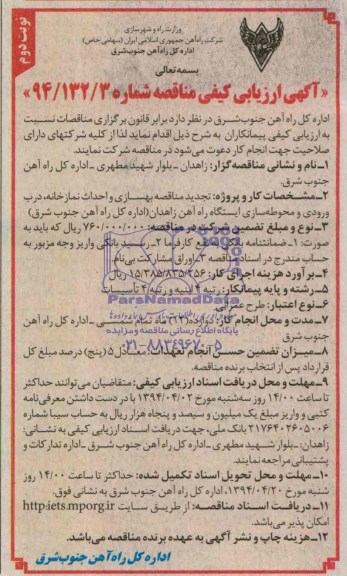 نوبت دوم
وزارت راه و شهرسازی
شرکت راه‌آهن جمهوری اسلامی ایران (سهامی خاص)
اداره کل راه آهن جنوب شرق
بسمه تعالی
«آگهی ارزیابی کیفی مناقصه شماره ۹۴/۱۳۲/۳»
اداره کل راه آهن جنوب‌شرق در نظر دارد برابر قانون برگزاری مناقصات نسبت
به ارزیابی کیفی پیمانکاران به شرح ذیل اقدام نماید لذا از کلیه شرکتهای دارای
صلاحیت جهت انجام کار دعوت می‌شود در مناقصه شرکت نمایند.
۱-نام و نشانی مناقصه‌گزار: زاهدان - بلوار شهید مطهری - اداره کل راه آهن
جنوب شرق.
۲-مشخصات کار و پروژه: تجدید مناقصه بهسازی و احداث نمازخانه، درب
ورودی و محوطه‌سازی ایستگاه راه آهن زاهدان (اداره کل راه آهن جنوب شرق)
۳-نوع و مبلغ تضمین شرکت در مناقصه: ۷۶۰/۰۰۰/۰۰۰ ریال که باید به
صورت: ۱-ضمانتنامه بانکی به نفع کارفرما ۲-رسید بانکی واریز وجه مزبور به
حساب مندرج در اسناد مناقصه ۳-اوراق مشارکت بی‌نام.
۴-برآورد هزینه اجرای کار: ۱۵/۳۸۵/۸۳۵/۲۵۶ ریال
۵-رشته و پایه پیمانکار: رتبه ۴ ابنیه و رتبه ۴ تأسیسات
۶-نوع اعتبار: طرح عمرانی
۷-مدت و محل انجام کار: دوازده (۱۲) ماه تمام شمسی - اداره کل راه آهن
جنوب شرق
ParsNamadData
پایگاه اطلاع رسانی مناقصه و مزایده
۰۲۱-۸۸۳۴۹۶۷۰-۵
۸-میزان تضمین حسن انجام تعهدات: معادل ۵ (پنج) درصد مبلغ کل
قرارداد پس از انتخاب برنده مناقصه.
۹-مهلت و محل دریافت اسناد ارزیابی کیفی: متقاضیان می‌توانند حداکثر
تا ساعت ۱۴/۰۰ روز سه‌شنبه مورخ ۱۳۹۴/۰۴/۰۲ با در دست داشتن معرفی‌نامه
کتبی و واریز مبلغ یک میلیون و سیصد و پنجاه هزار ریال به حساب سیبا شماره
۲۱۷۶۴۰۲۶۰۵۰۰۶ بانک ملی، جهت دریافت اسناد ارزیابی کیفی به نشانی:
زاهدان- بلوار شهید مطهری - اداره کل راه آهن جنوب شرق - اداره تدارکات و
پشتیبانی مراجعه نمایند.
۱۰-مهلت و محل تحویل اسناد تکمیل شده: حداکثر تا ساعت ۱۴/۰۰ روز
شنبه مورخ ۱۳۹۴/۰۴/۲۰، اداره کل راه آهن جنوب شرق به نشانی فوق.
۱۱-دریافت اسناد مناقصه: از طریق سایت http:iets.mporg.ir
امکان پذیر می‌باشد.
۱۲-هزینه چاپ و نشر آگهی به عهده برنده مناقصه می‌باشد.
اداره کل راه آهن جنوب شرق